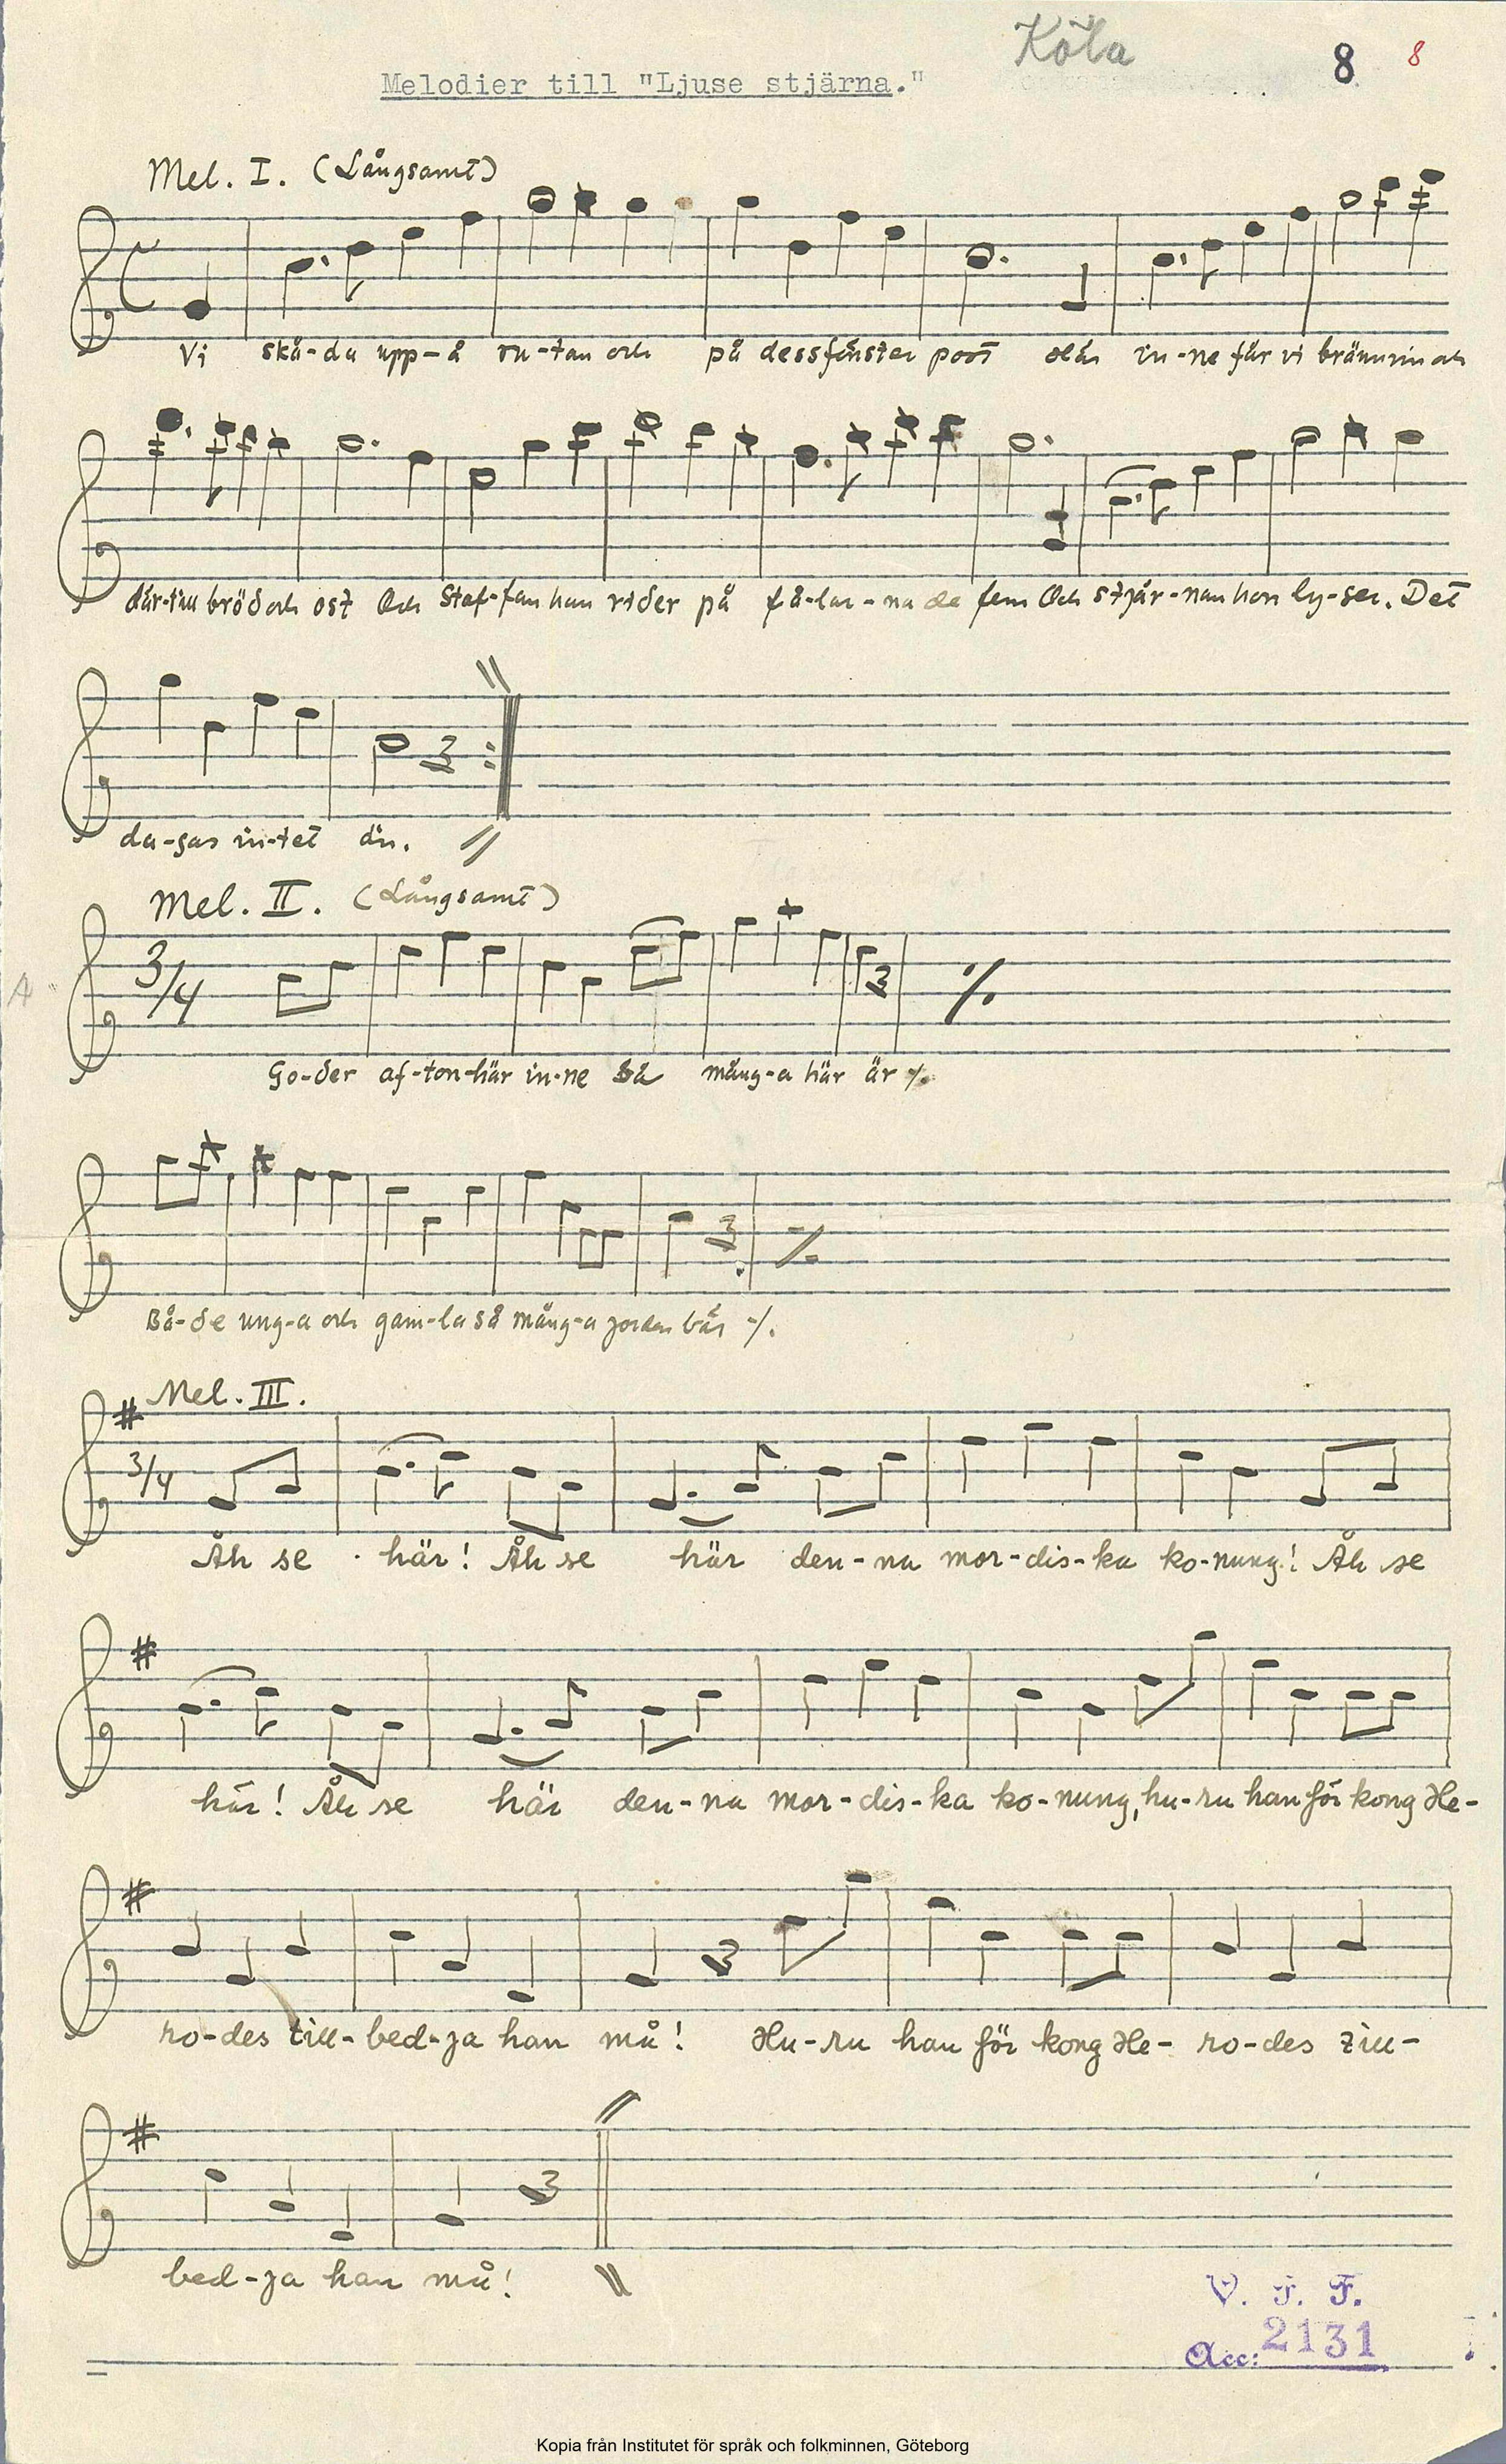 Köla
8 8
Melodier till "Ljuse stjärna."
Mel. I. (Långsamt)
Vi skå-da upp-å ru-tan och på dess fönster post där in-ne får vi brännvin och
där-till bröd och ost Och Staf-fan han rider på få-lar-na de fem Och stjär-nan hon ly-ser. Det
da-gas in-tet än.
Mel. II. (Långsamt)
3/4
Go-der af-ton-här in-ne så mång-a här är ٪
Bå-de ung-a och gam-la så mång-a jorden bär ٪
Mel. III.
3/4
Åh se här! Åh se här den-na mor-dis-ka ko-nung! Åh se
här! Åh se här den-na mor-dis-ka ko-nung, hu-ru han för kong He-
ro-des till-bed-ja han må! Hu-ru han för kong He-ro-des till-
bed-ja han må!
V. F. F.
Acc: 2131
Kopia från Institutet för språk och folkminnen, Göteborg